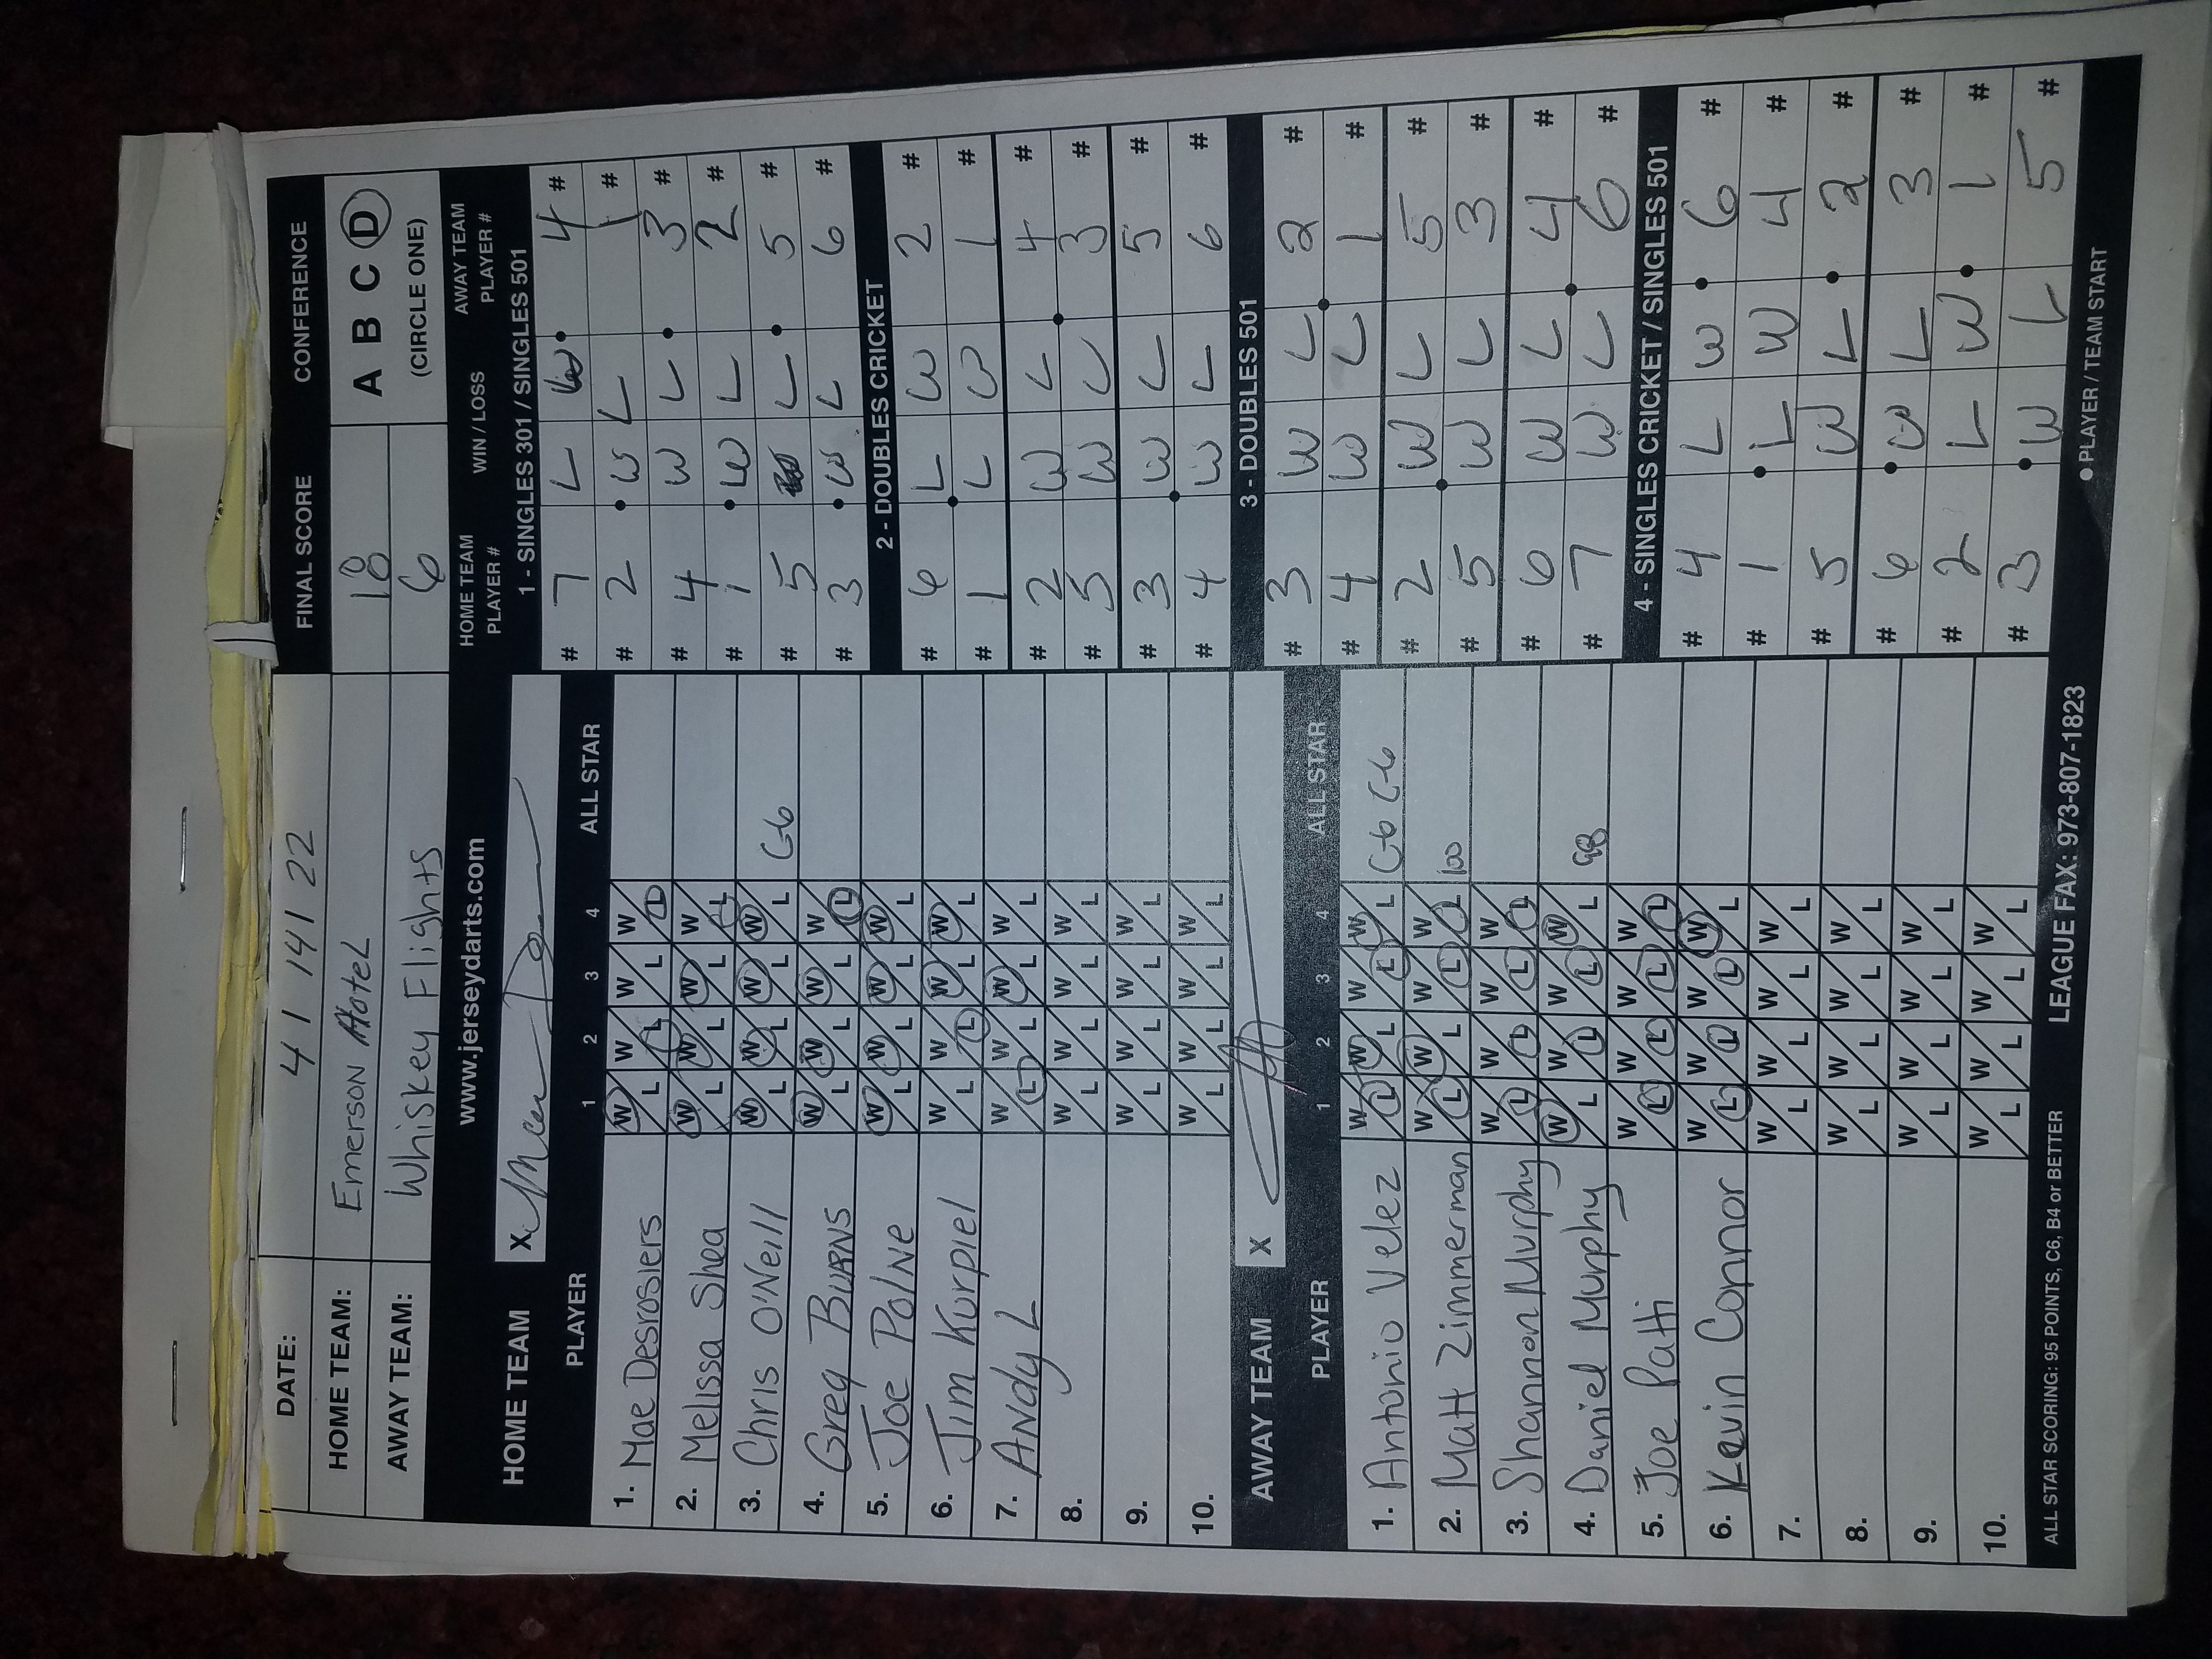 DATE: 4 / 14 / 22 FINAL SCORE CONFERENCE
HOME TEAM: Emerson Hotel 18 A B C D
AWAY TEAM: Whiskey Flights 6 (CIRCLE ONE)
www.jerseydarts.com
HOME TEAM X
PLAYER 1 2 3 4 ALL STAR
1. Mae Desrosiers W L W L W L W L
2. Melissa Shea W L W L W L W L
3. Chris O'Neill W L W L W L W L C-6
4. Greg Burns W L W L W L W L
5. Joe Polne W L W L W L W L
6. Jim Korpiel W L W L W L W L
7. Andy L W L W L W L W L
8. W L W L W L W L
9. W L W L W L W L
10. W L W L W L W L
AWAY TEAM X
PLAYER 1 2 3 4 ALL STAR
1. Antonio Velez W L W L W L W L C-6 C-6
2. Matt Zimmerman W L W L W L W L 100
3. Shannon Murphy W L W L W L W L
4. Daniel Murphy W L W L W L W L
5. Joe Patti W L W L W L W L
6. Kevin Connor W L W L W L W L
7. W L W L W L W L
8. W L W L W L W L
9. W L W L W L W L
10. W L W L W L W L
HOME TEAM PLAYER # WIN / LOSS AWAY TEAM PLAYER #
1 - SINGLES 301 / SINGLES 501
# 7 L W 4 #
# 2 W L 1 #
# 4 W L 3 #
# 1 W L 2 #
# 5 L 5 #
# 3 W L 6 #
2 - DOUBLES CRICKET
# 6 L W 2 #
# 1 L W 1 #
# 2 W L 4 #
# 5 W L 3 #
# 3 W L 5 #
# 4 W L 6 #
3 - DOUBLES 501
# 3 W L 2 #
# 4 W L 1 #
# 2 W L 5 #
# 5 W L 3 #
# 6 W L 4 #
# 7 W L 6 #
4 - SINGLES CRICKET / SINGLES 501
# 4 L W 6 #
# 1 L W 4 #
# 5 W L 2 #
# 6 W L 3 #
# 2 L W 1 #
# 3 W L 5 #
ALL STAR SCORING: 95 POINTS, C6, B4 or BETTER LEAGUE FAX: 973-807-1823 ● PLAYER / TEAM START